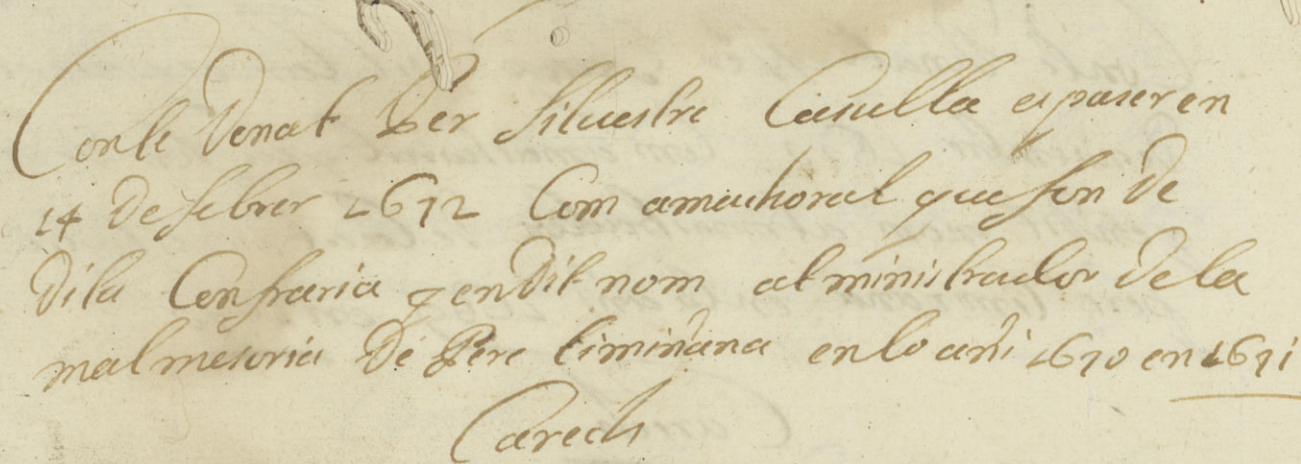 Conte Donat Per Siluestre Casulla espaser en
14 de febrer 1672 Com a maihoral que fon de
dita Confraria y en dit nom atministrador de la
malmesoria de Pere timiñana en lo añi 1670 en 1671
Carech